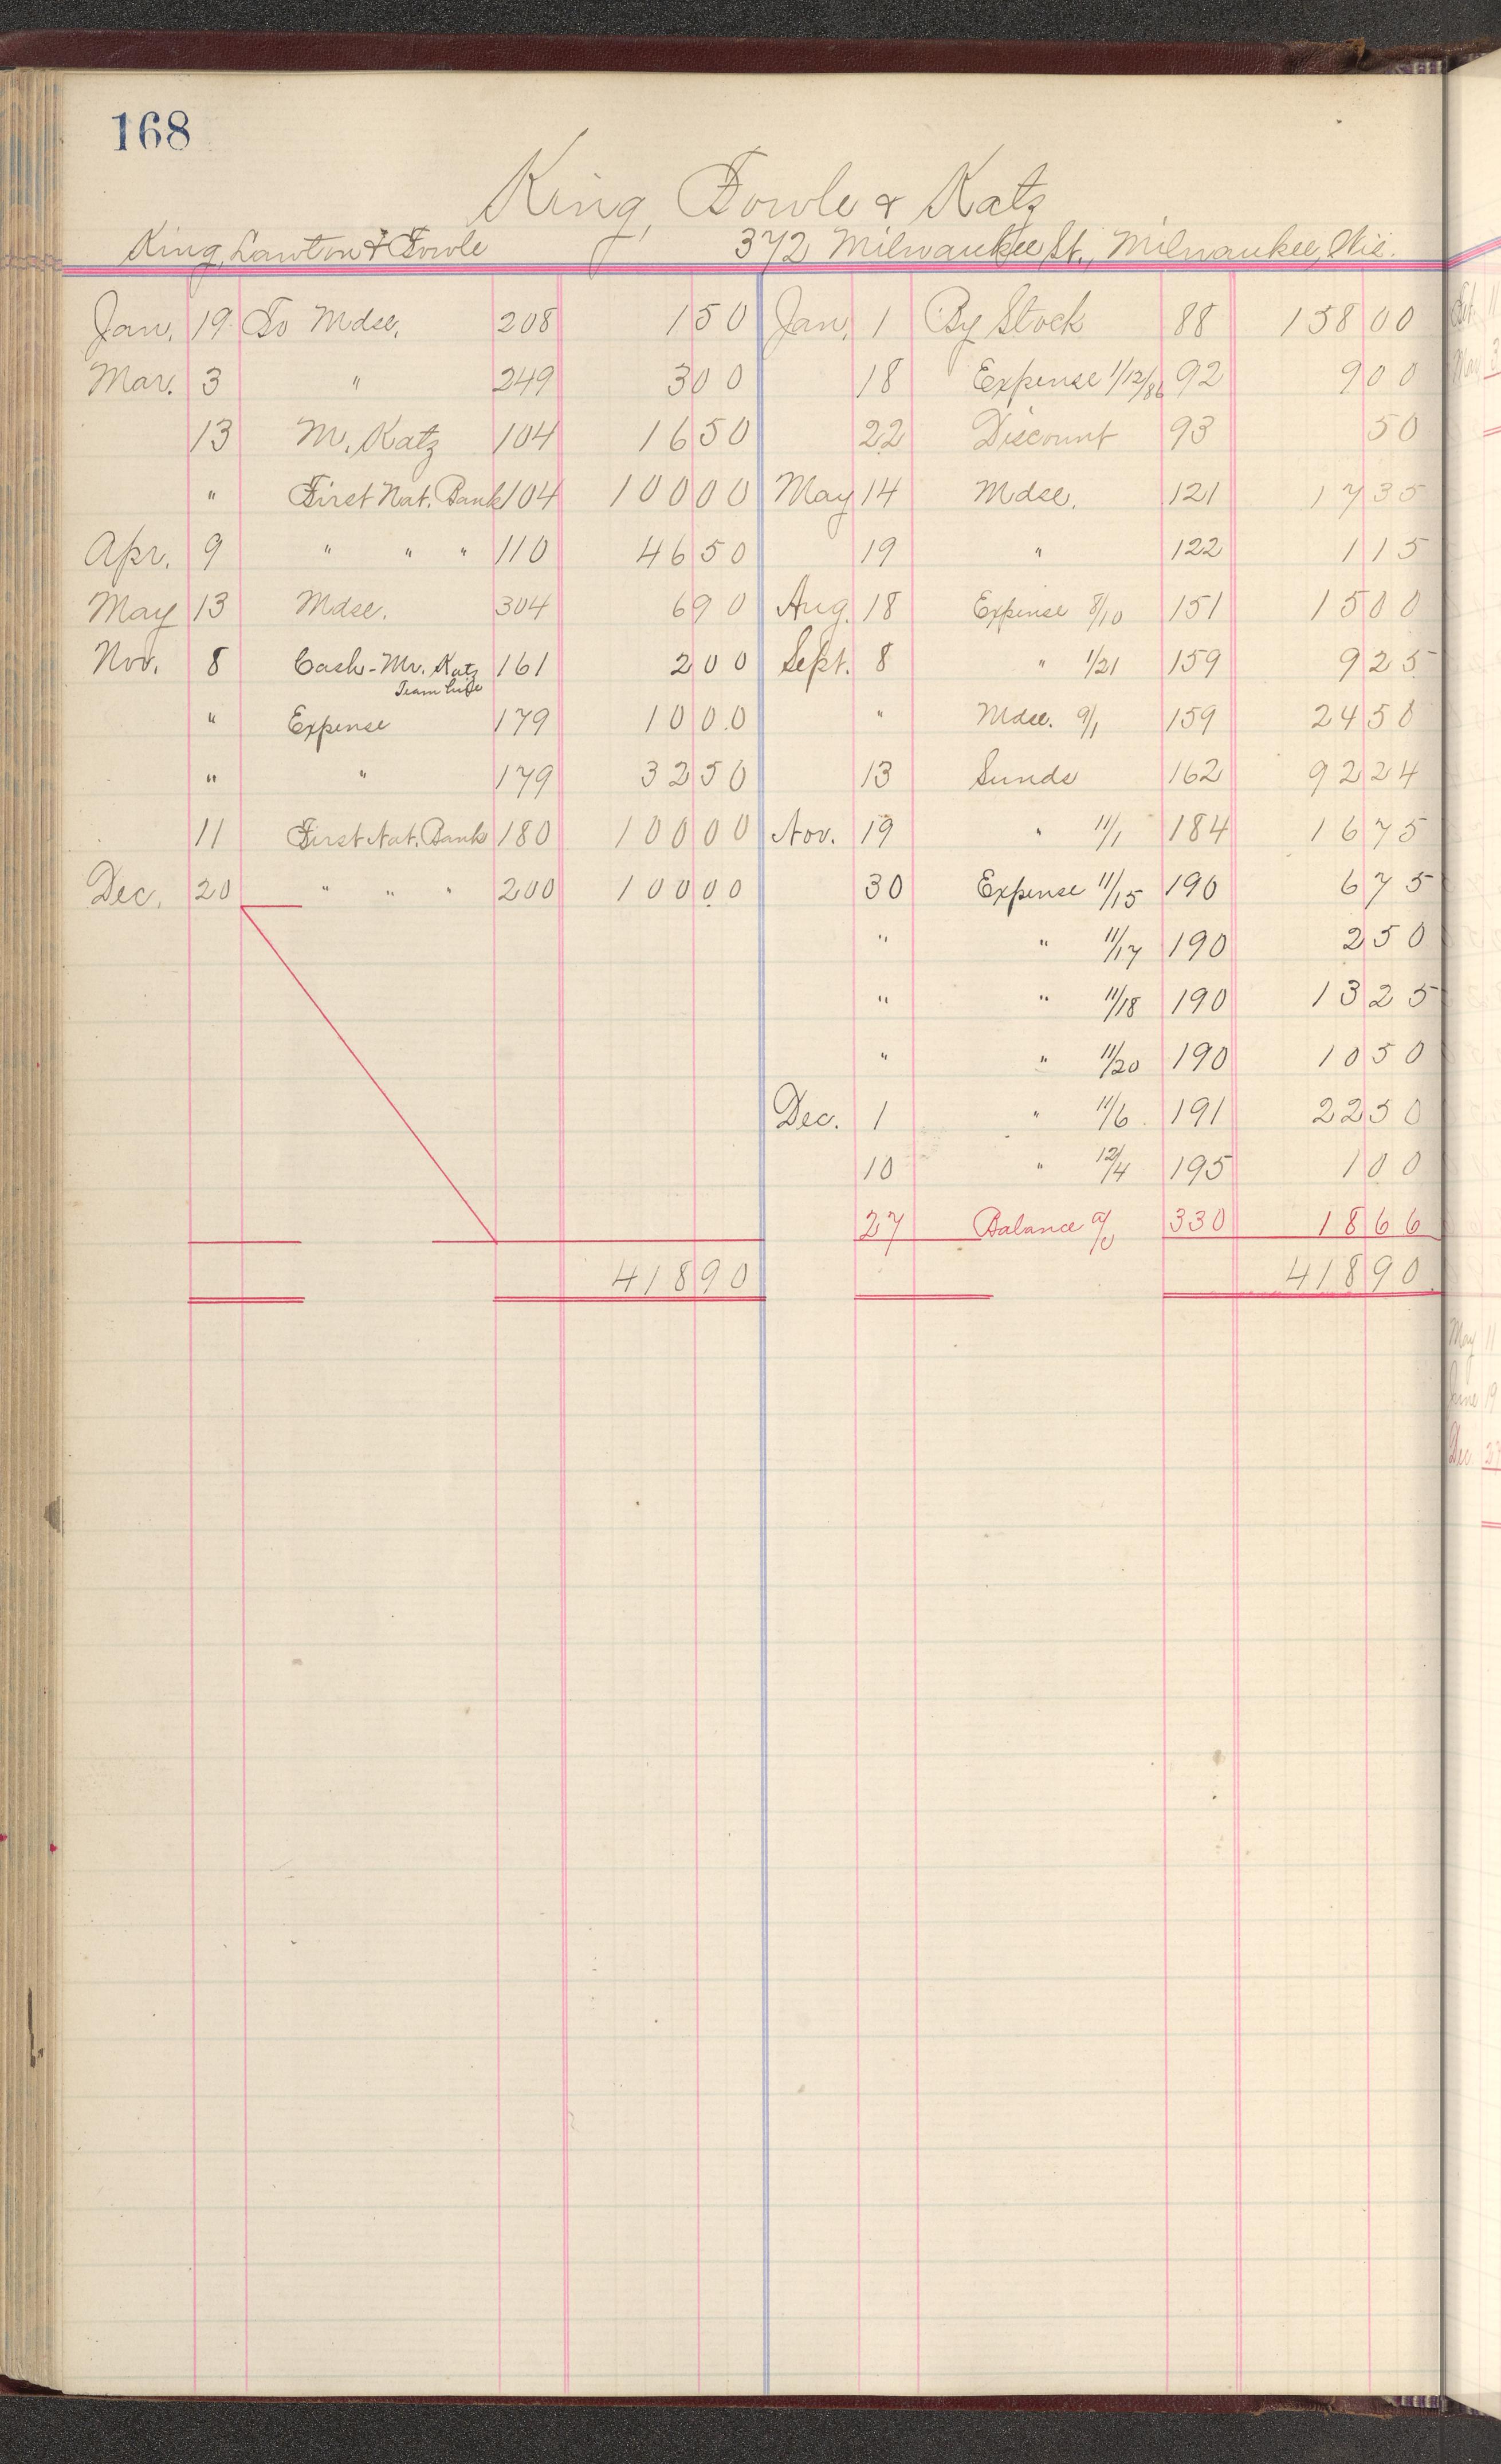 168
King, Fowle & Katz
King, Lawton & Fowle 372 Milwaukee St., Milwaukee, Wis.
Jan. 19 To Mdse. 208 1 50 Jan. 1 By Stock 88 158 00
Mar. 3 " 249 3 00 18 Expense 1/12/86 92 9 00
13 M. Katz 104 16 50 22 Discount 93 50
" First Nat. Bank 104 100 00 May 14 Mdse. 121 17 35
Apr. 9 " " " 110 46 50 19 " 122 1 15
May 13 Mdse. 304 6 90 Aug. 18 Expense 8/10 151 15 00
Nov. 8 Cash - Mr. Katz 161 2 00 Sept. 8 " 1/21 159 9 25
" Expense 179 10 00 " Mdse. 9/1 159 24 50
" " 179 32 50 13 Sunds 162 92 24
11 First Nat. Bank 180 100 00 Nov. 19 " 11/1 184 16 75
Dec. 20 " " " 200 100 00 30 Expense 11/15 190 6 75
" " 11/17 190 2 50
" " 11/18 190 13 25
" " 11/20 190 10 50
Dec. 1 " 11/6 191 22 50
10 " 12/4 195 1 00
27 Balance a/c 330 18 66
418 90 418 90